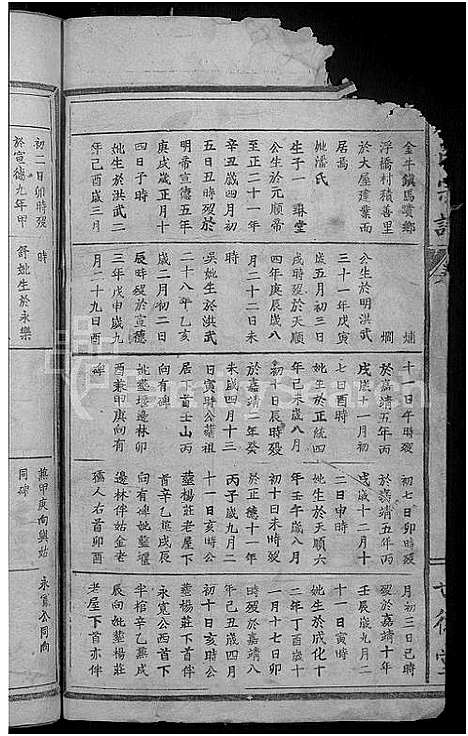 金牛鎮馬賽鄉
浮橋村積善里
於大屋建業而
居焉
妣潘氏
生子一 璹堂
公生於元順帝
至正二十一年
辛丑歲四月初
五日丑時歿於
明帝宣德五年
庚戌歲正月十
四日子時
妣生於洪武二
年己酉歲三月
埔 壛
公生於明洪武
三十一年戊寅
歲五月初三日
戌時歿於天順
四年庚辰歲八
月二十二日未
時
吳妣生於洪武
二十八年乙亥
歲二月初二日
辰時歿於宣德
三年戊申歲九
月二十九日酉
十一日午時歿
於嘉靖五年丙
戌歲十一月初
七日酉時
妣生於正統四
年己未歲八月
初十日辰時歿
於嘉靖二年癸
未歲四月十三
日寅時公葬祖
居下首壬山丙
向有碑
妣墓堰邊林卯
酉兼甲庚向有
碑
初七日卯時歿
於嘉靖五年丙
戌歲十二月十
二日申時
妣生於天順六
年壬午歲八月
初十日未時歿
於正德十一年
丙子歲九月二
十一日亥時公
葬楊莊老屋下
首辛乙兼戌辰
向有碑妣墓堰
邊林伴姑金老
孺人右首卯酉
月初三日己時
歿於嘉靖十年
壬辰歲九月二
十一日寅時
妣生於成化十
二年丁酉歲十
一月十七日卯
時歿於嘉靖八
年己丑歲四月
初十日亥時公
葬楊莊下首伴
永寬公西首下
半棺辛乙兼戌
辰向妣墓楊莊
老屋下首亦伴
初二日卯時歿
於宣德九年甲
時
舒妣生於永樂
兼甲庚向與姑
同碑
永寬公同向